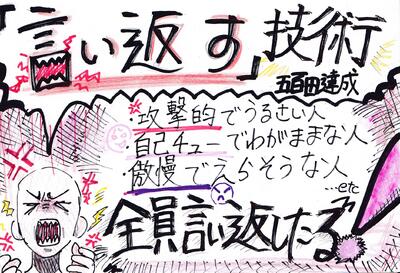 「言い返す」技術
五百田達成
・攻撃的でうるさい人
・自己チューでわがままな人
・傲慢でえらそうな人
…etc
全員言い返したる!